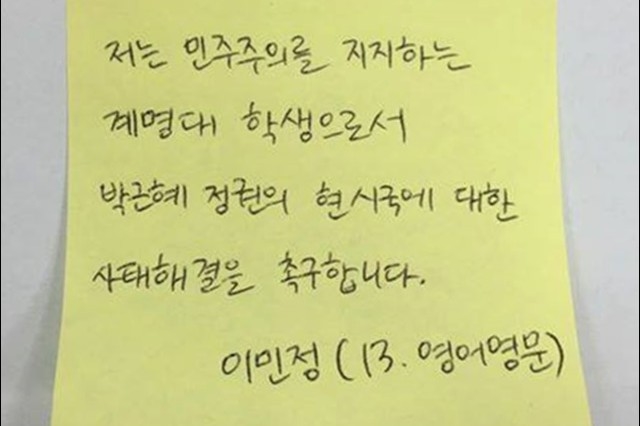 저는 민주주의를 지지하는
계명대 학생으로서
박근혜 정권의 현시국에 대한
사태해결을 촉구합니다.
이민정 (13. 영어영문)